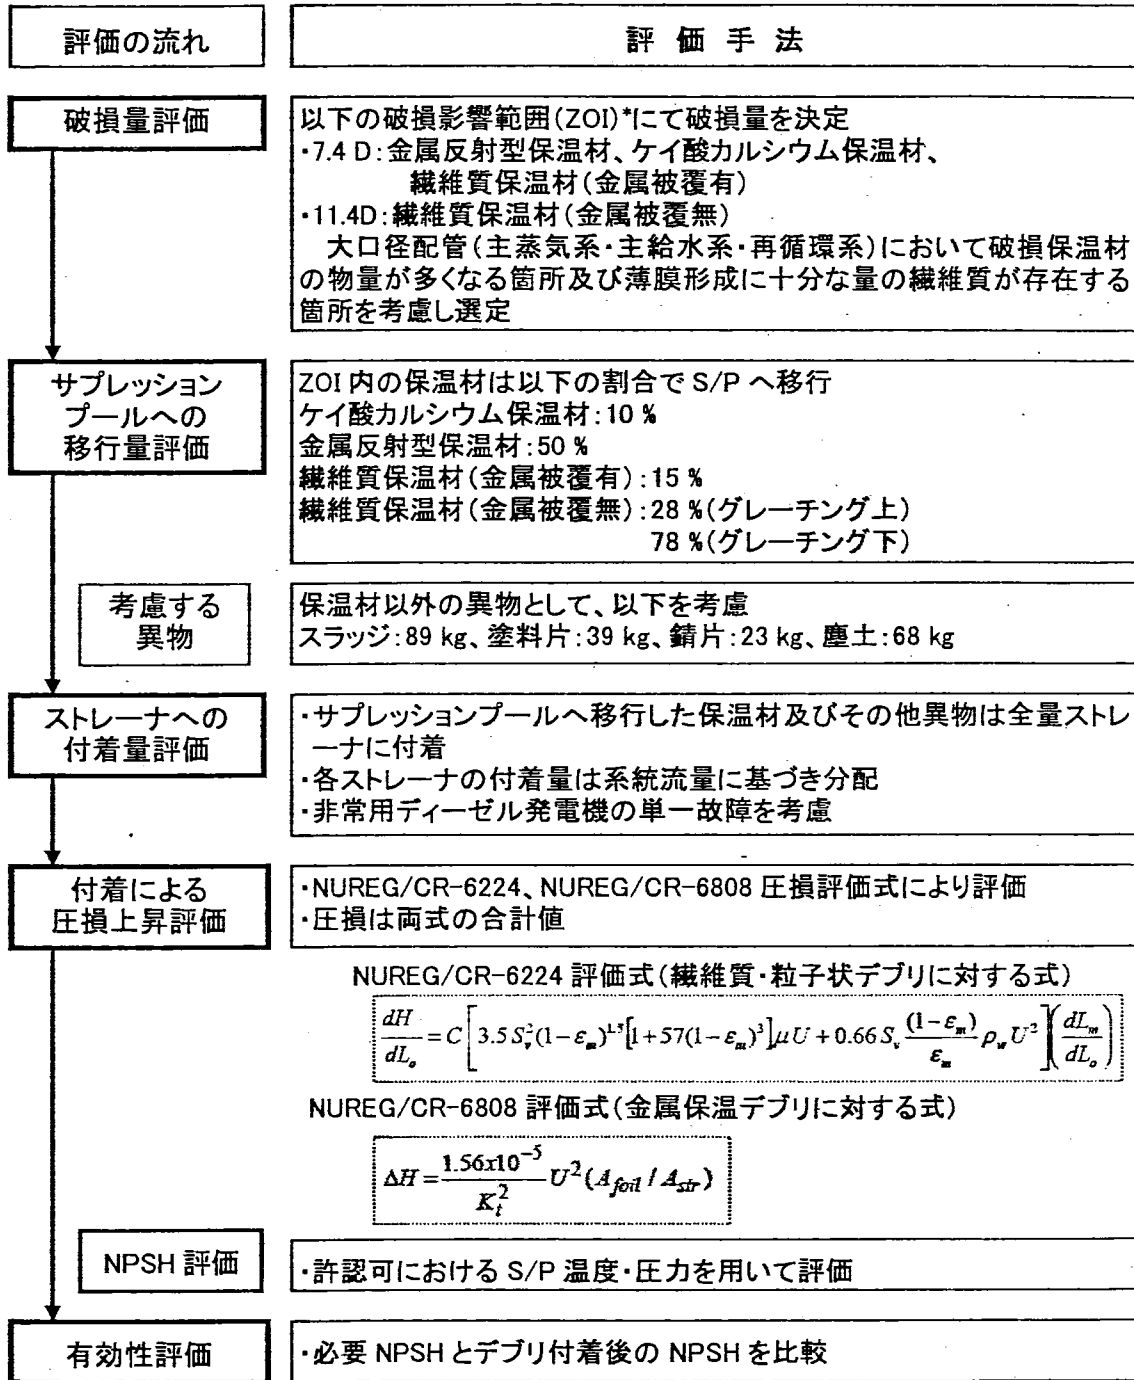 評価の流れ
評 価 手 法
破損量評価
以下の破損影響範囲(ZOI)*にて破損量を決定
・7.4 D:金属反射型保温材、ケイ酸カルシウム保温材、
繊維質保温材(金属被覆有)
・11.4D:繊維質保温材(金属被覆無)
大口径配管(主蒸気系・主給水系・再循環系)において破損保温材
の物量が多くなる箇所及び薄膜形成に十分な量の繊維質が存在する
箇所を考慮し選定
サプレッション
プールへの
移行量評価
ZOI 内の保温材は以下の割合で S/P へ移行
ケイ酸カルシウム保温材:10 %
金属反射型保温材:50 %
繊維質保温材(金属被覆有):15 %
繊維質保温材(金属被覆無):28 %(グレーチング上)
78 %(グレーチング下)
考慮する
異物
保温材以外の異物として、以下を考慮
スラッジ:89 kg、塗料片:39 kg、錆片:23 kg、塵土:68 kg
ストレーナへの
付着量評価
・サプレッションプールへ移行した保温材及びその他異物は全量ストレ
ーナに付着
・各ストレーナの付着量は系統流量に基づき分配
・非常用ディーゼル発電機の単一故障を考慮
付着による
圧損上昇評価
・NUREG/CR-6224、NUREG/CR-6808 圧損評価式により評価
・圧損は両式の合計値
NUREG/CR-6224 評価式(繊維質・粒子状デブリに対する式)
dH/dL_o = C[3.5 S_v^2 (1-ε_m)^1.5 [1+57(1-ε_m)^3] μU + 0.66 S_v (1-ε_m)/ε_m ρ_w U^2](dL_m/dL_o)
NUREG/CR-6808 評価式(金属保温デブリに対する式)
ΔH = 1.56x10^-5/K_t^2 U^2 (A_foil / A_str)
NPSH 評価
・許認可における S/P 温度・圧力を用いて評価
有効性評価
・必要 NPSH とデブリ付着後の NPSH を比較